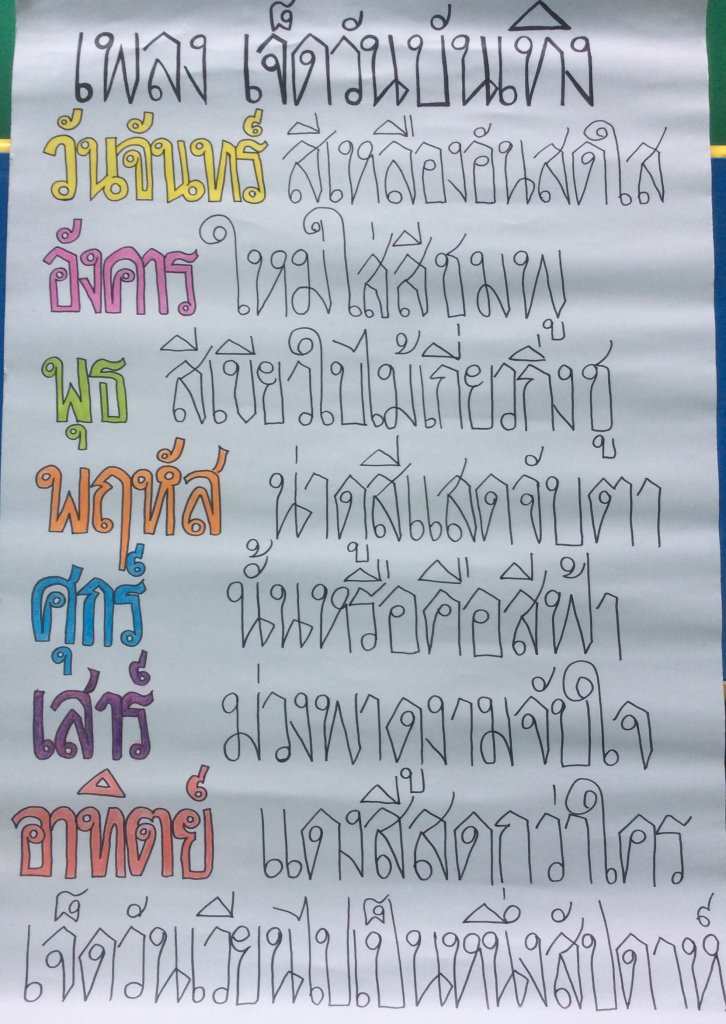 เพลง เจ็ดวันบันเทิง
วันจันทร์ สีเหลืองอันสดใส
อังคาร ใหม่ใส่สีชมพู
พุธ สีเขียวใบไม้เกี่ยวกิ่งชู
พฤหัส น่าดูสีแสดจับตา
ศุกร์ นั้นหรือคือสีฟ้า
เสาร์ ม่วงพาดูงามจับใจ
อาทิตย์ แดงสีสดกว่าใคร
เจ็ดวันเวียนไปเป็นหนึ่งสัปดาห์